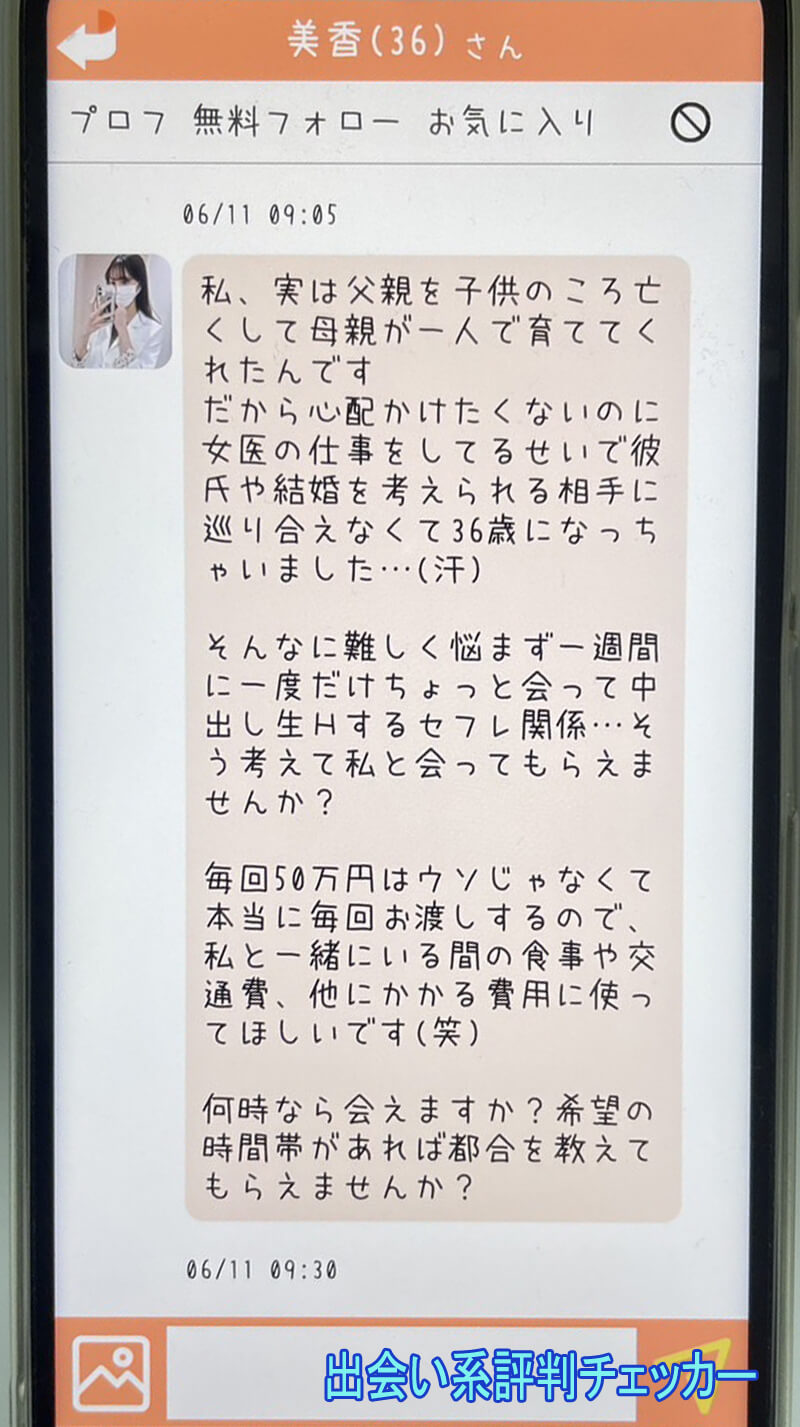 美香(36)さん
プロフ 無料フォロー お気に入り
06/11 09:05
私、実は父親を子供のころ亡
くして母親が一人で育ててく
れたんです
だから心配かけたくないのに
女医の仕事をしてるせいで彼
氏や結婚を考えられる相手に
巡り合えなくて36歳になっち
ゃいました…(汗)
そんなに難しく悩まず一週間
に一度だけちょっと会って中
出し生Hするセフレ関係…そ
う考えて私と会ってもらえま
せんか？
毎回50万円はウソじゃなくて
本当に毎回お渡しするので、
私と一緒にいる間の食事や交
通費、他にかかる費用に使っ
てほしいです(笑)
何時なら会えますか？希望の
時間帯があれば都合を教えて
もらえませんか？
06/11 09:30
出会い系評判チェッカー